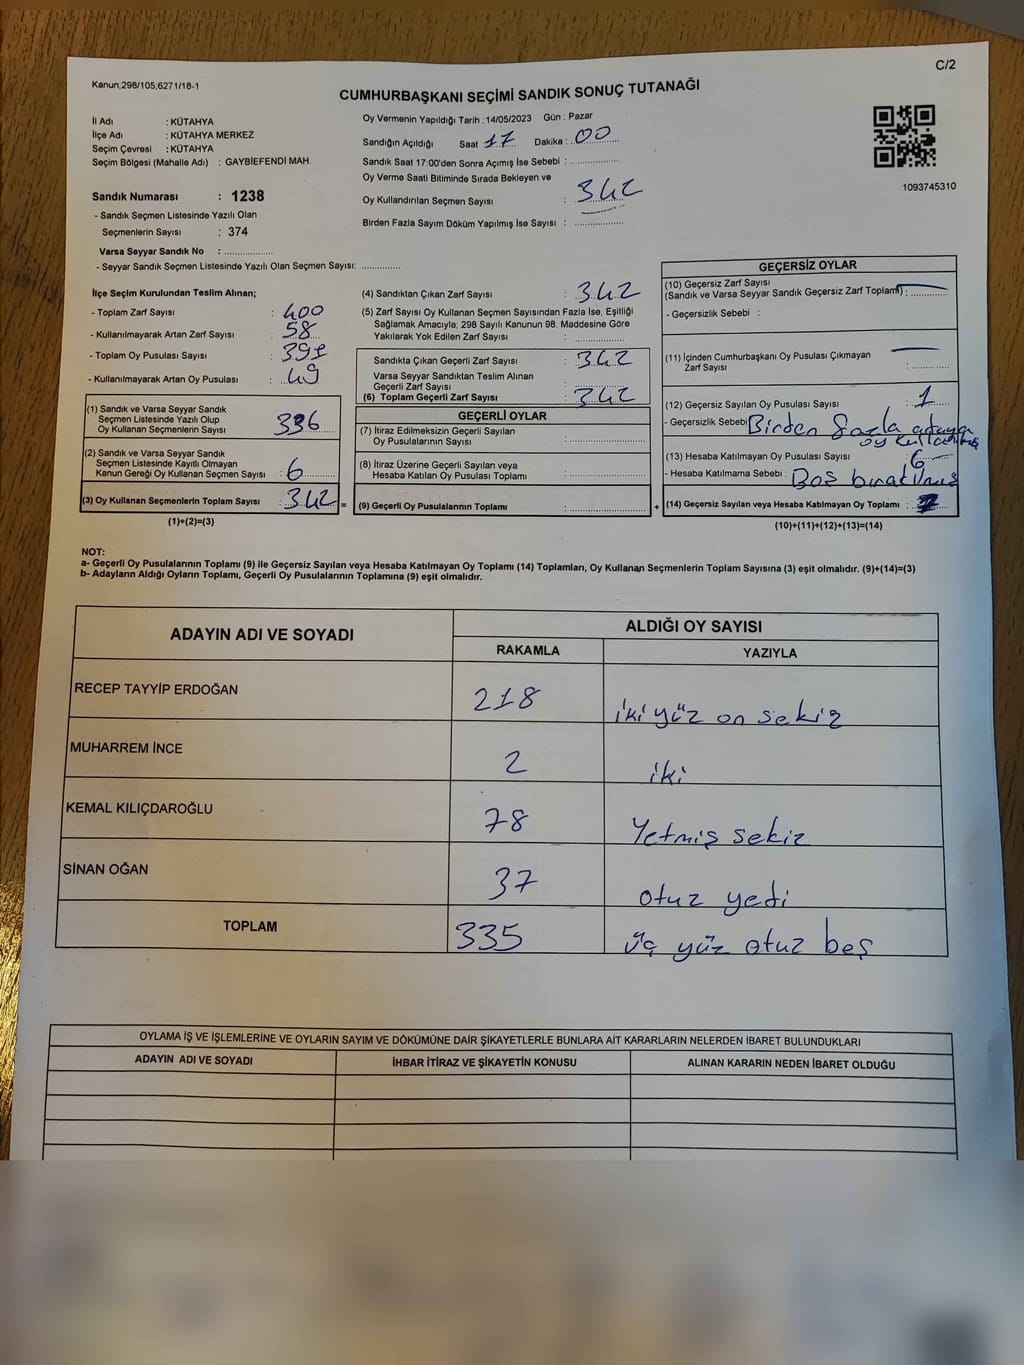 C/2
Kanun;298/105;6271/18-1
CUMHURBAŞKANI SEÇİMİ SANDIK SONUÇ TUTANAĞI
İl Adı : KÜTAHYA
İlçe Adı : KÜTAHYA MERKEZ
Seçim Çevresi : KÜTAHYA
Seçim Bölgesi (Mahalle Adı) : GAYBİEFENDİ MAH.
Sandık Numarası : 1238
- Sandık Seçmen Listesinde Yazılı Olan
Seçmenlerin Sayısı : 374
Varsa Seyyar Sandık No : ..................
- Seyyar Sandık Seçmen Listesinde Yazılı Olan Seçmen Sayısı: ..............
Oy Vermenin Yapıldığı Tarih : 14/05/2023 Gün : Pazar
Sandığın Açıldığı Saat 17 Dakika : 00
Sandık Saat 17:00'den Sonra Açımış İse Sebebi : ..................
Oy Verme Saati Bitiminde Sırada Bekleyen ve
Oy Kullandırılan Seçmen Sayısı : 342
Birden Fazla Sayım Döküm Yapılmış İse Sayısı : ..................
1093745310
İlçe Seçim Kurulundan Teslim Alınan;
- Toplam Zarf Sayısı : 400
- Kullanılmayarak Artan Zarf Sayısı : 58
- Toplam Oy Pusulası Sayısı : 391
- Kullanılmayarak Artan Oy Pusulası : 49
(1) Sandık ve Varsa Seyyar Sandık
Seçmen Listesinde Yazılı Olup
Oy Kullanan Seçmenlerin Sayısı : 336
(2) Sandık ve Varsa Seyyar Sandık
Seçmen Listesinde Kayıtlı Olmayan
Kanun Gereği Oy Kullanan Seçmen Sayısı : 6
(3) Oy Kullanan Seçmenlerin Toplam Sayısı : 342 =
(1)+(2)=(3)
(4) Sandıktan Çıkan Zarf Sayısı : 342
(5) Zarf Sayısı Oy Kullanan Seçmen Sayısından Fazla İse, Eşitliği
Sağlamak Amacıyla; 298 Sayılı Kanunun 98. Maddesine Göre
Yakılarak Yok Edilen Zarf Sayısı : ..................
Sandıkta Çıkan Geçerli Zarf Sayısı : 342
Varsa Seyyar Sandıktan Teslim Alınan
Geçerli Zarf Sayısı : ..................
(6) Toplam Geçerli Zarf Sayısı : 342
GEÇERLİ OYLAR
(7) İtiraz Edilmeksizin Geçerli Sayılan
Oy Pusulalarının Sayısı : ..................
(8) İtiraz Üzerine Geçerli Sayılan veya
Hesaba Katılan Oy Pusulaları Toplamı : ..................
(9) Geçerli Oy Pusulalarının Toplamı : .................. +
GEÇERSİZ OYLAR
(10) Geçersiz Zarf Sayısı
(Sandık ve Varsa Seyyar Sandık Geçersiz Zarf Toplamı) : ............
- Geçersizlik Sebebi :
(11) İçinden Cumhurbaşkanı Oy Pusulası Çıkmayan
Zarf Sayısı : ............
(12) Geçersiz Sayılan Oy Pusulası Sayısı : 1
- Geçersizlik Sebebi Birden fazla adaya
oy kullanılmış
(13) Hesaba Katılmayan Oy Pusulası Sayısı : 6
- Hesaba Katılmama Sebebi : Boş bırakılmış
(14) Geçersiz Sayılan veya Hesaba Katılmayan Oy Toplamı : 7
(10)+(11)+(12)+(13)=(14)
NOT:
a- Geçerli Oy Pusulalarının Toplamı (9) ile Geçersiz Sayılan veya Hesaba Katılmayan Oy Toplamı (14) Toplamları, Oy Kullanan Seçmenlerin Toplam Sayısına (3) eşit olmalıdır. (9)+(14)=(3)
b- Adayların Aldığı Oyların Toplamı, Geçerli Oy Pusulalarının Toplamına (9) eşit olmalıdır.
ADAYIN ADI VE SOYADI
ALDIĞI OY SAYISI
RAKAMLA YAZIYLA
RECEP TAYYİP ERDOĞAN 218 iki yüz on sekiz
MUHARREM İNCE 2 iki
KEMAL KILIÇDAROĞLU 78 Yetmiş sekiz
SİNAN OĞAN 37 otuz yedi
TOPLAM 335 üç yüz otuz beş
OYLAMA İŞ VE İŞLEMLERİNE VE OYLARIN SAYIM VE DÖKÜMÜNE DAİR ŞİKAYETLERLE BUNLARA AİT KARARLARIN NELERDEN İBARET BULUNDUKLARI
ADAYIN ADI VE SOYADI İHBAR İTİRAZ VE ŞİKAYETİN KONUSU ALINAN KARARIN NEDEN İBARET OLDUĞU